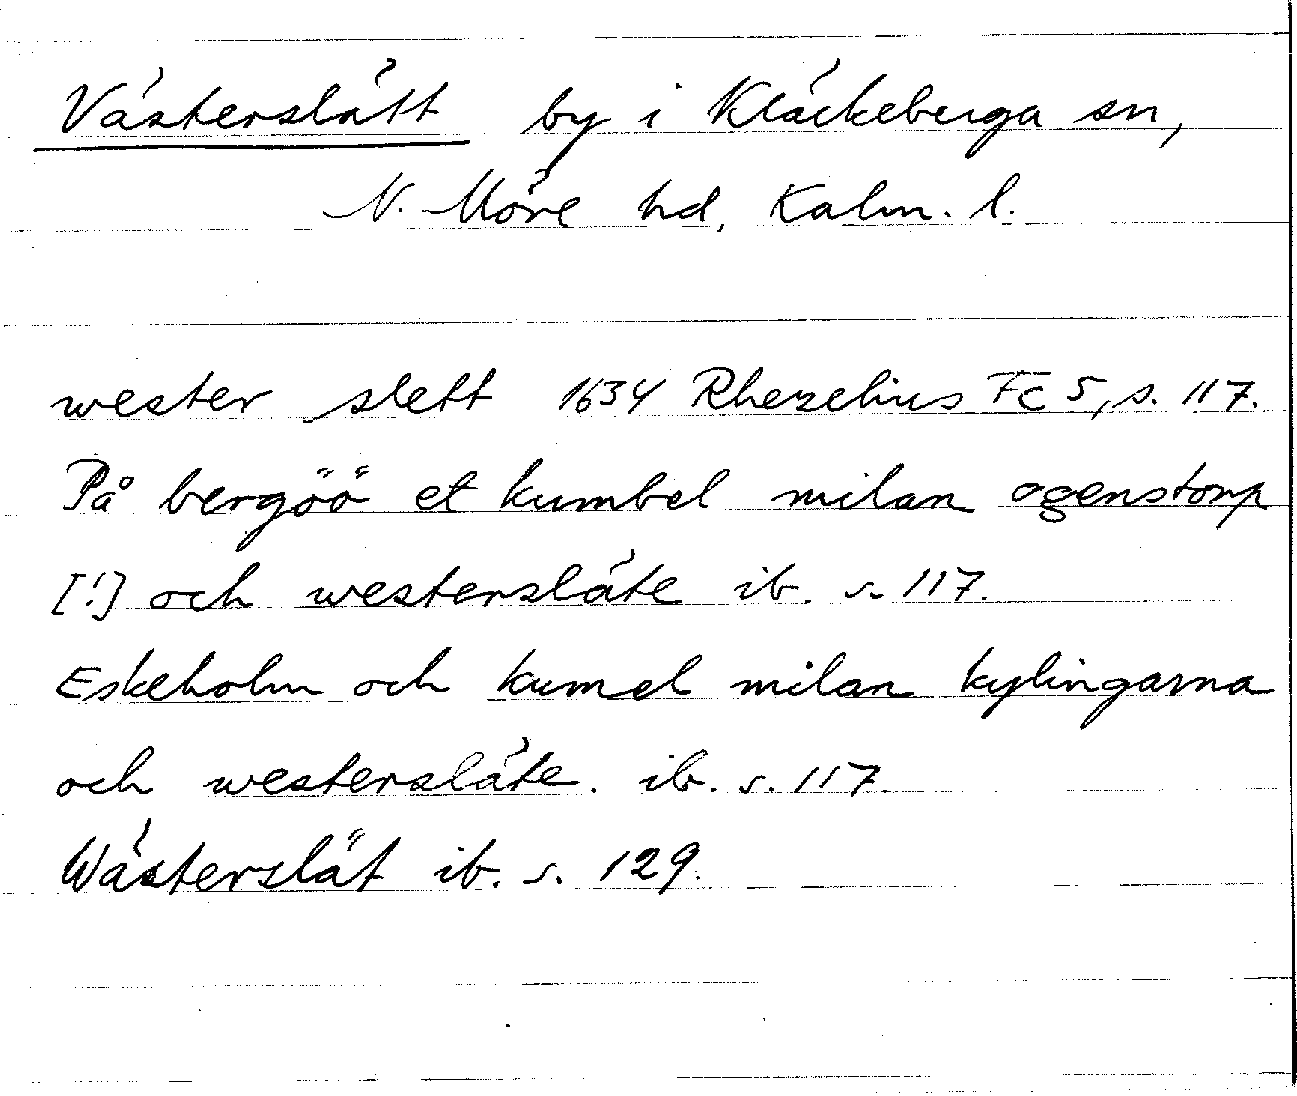 Västerslätt by i Kläckeberga sn,
N. Möre hd, Kalm. l.
wester slett 1634 Rhezelius Fc 5, s. 117.
På bergöö et kumbel milan ogenstorp
[!] och westersläte ib. s. 117.
Eskeholm och kumel milan kylingarna
och westersläte. ib. s. 117.
Wästerslät ib. s. 129.